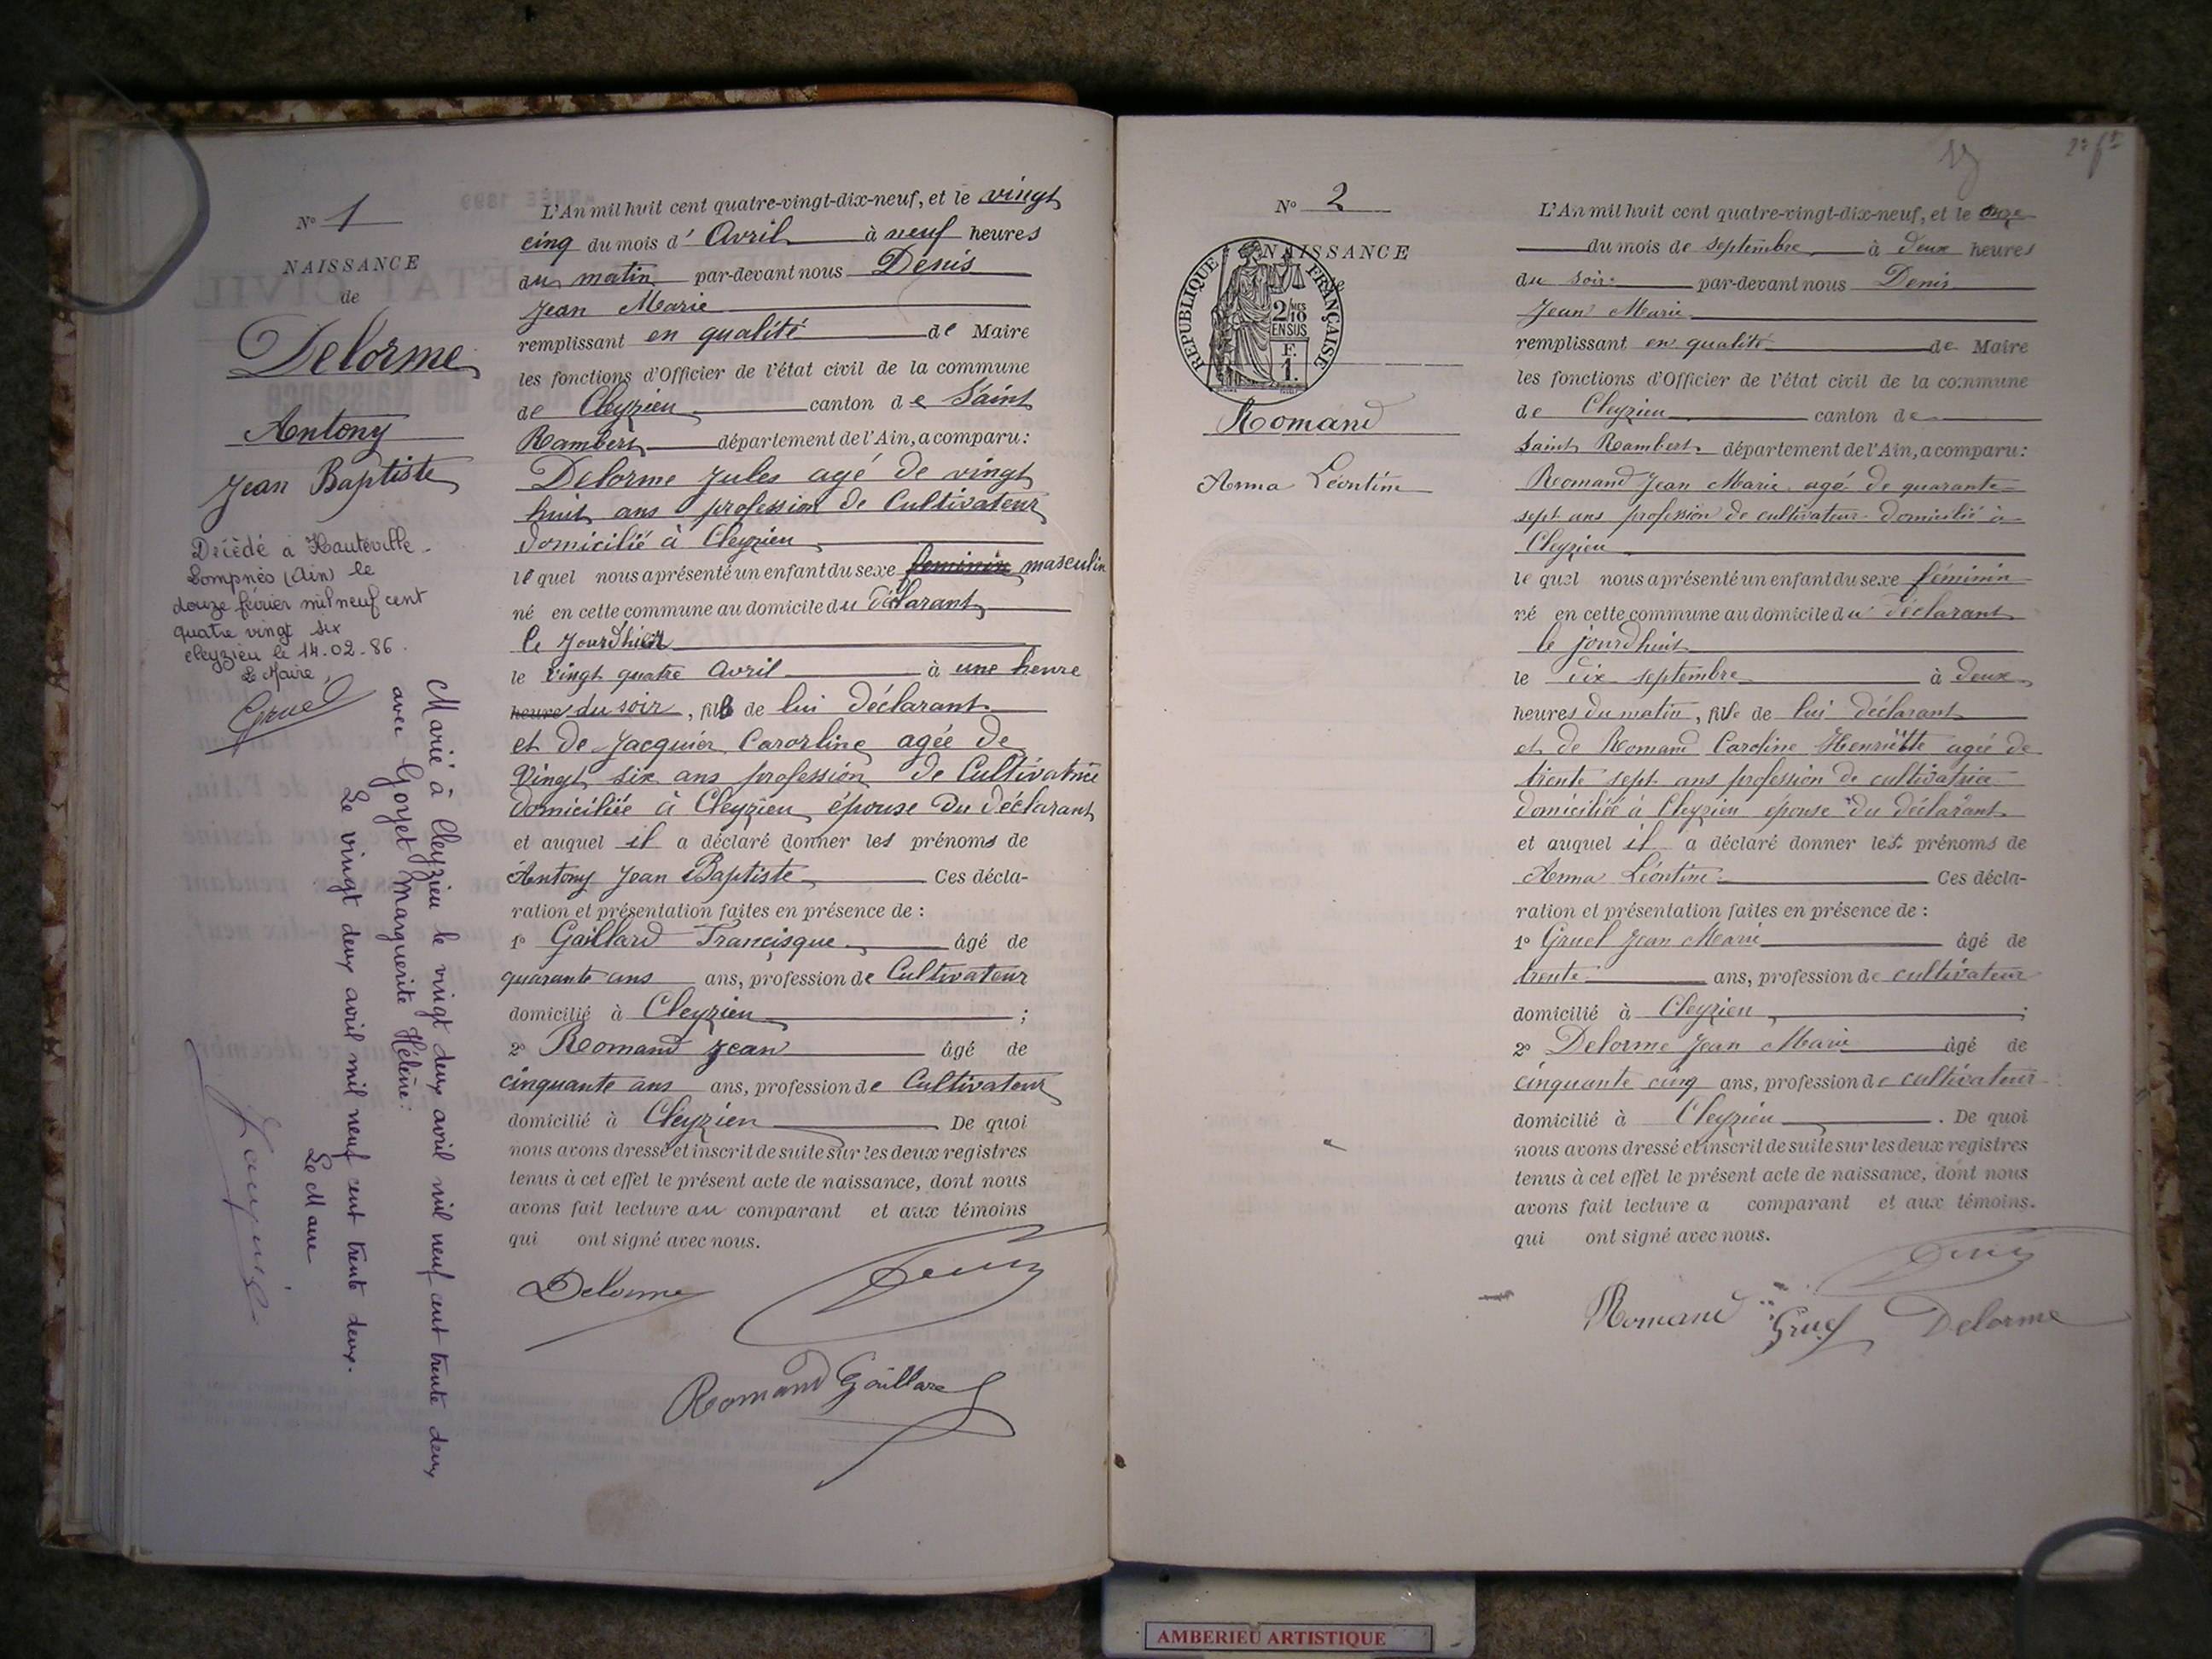 N° 1
NAISSANCE
de
Delorme
Antony
Jean Baptiste
Décédé à Hauteville-
Lompnes (Ain) le
douze février mil neuf cent
quatre vingt six
cleyzieu le 14.02.86.
Le Maire,
Gruel
Marié à Cleyzieu le vingt deux avril mil neuf cent trente deux
avec Goyet Marguerite Hélène :
Le vingt deux avril mil neuf cent trente deux.
Le Maire
L'An mil huit cent quatre-vingt-dix-neuf, et le vingt
cinq du mois d' Avril à neuf heures
du matin par-devant nous Denis
Jean Marie
remplissant en qualité de Maire
les fonctions d'Officier de l'état civil de la commune
de Cleyzieu canton de Saint
Rambert département de l'Ain, a comparu :
Delorme Jules agé de vingt
huit ans profession de Cultivateur
domicilié à Cleyzieu
le quel nous a présenté un enfant du sexe feminin masculin
né en cette commune au domicile du déclarant
le
le vingt quatre Avril à une heure
heure du soir, fils de lui déclarant
et de Jacquier Carorline agée de
Vingt six ans profession de Cultivatrice
domiciliée à Cleyzieu épouse du déclarant
et auquel il a déclaré donner les prénoms de
Antony Jean Baptiste Ces décla-
ration et présentation faites en présence de :
1° Gaillard Francisque âgé de
quarante ans ans, profession de Cultivateur
domicilié à Cleyzieu ;
2° Romand Jean âgé de
cinquante ans ans, profession de Cultivateur
domicilié à Cleyzieu De quoi
nous avons dressé et inscrit de suite sur les deux registres
tenus à cet effet le présent acte de naissance, dont nous
avons fait lecture au comparant et aux témoins
qui ont signé avec nous.
Delorme Denis
Romand Gaillard
N° 2
NAISSANCE
de
RÉPUBLIQUE FRANÇAISE
2/10 MES
EN SUS
F.
1.
Romand
Anna Léontine
L'An mil huit cent quatre-vingt-dix-neuf, et le onze
du mois de septembre à deux heures
du soir par-devant nous Denis
Jean Marie
remplissant en qualité de Maire
les fonctions d'Officier de l'état civil de la commune
de Cleyzieu canton de
Saint Rambert département de l'Ain, a comparu :
Romand Jean Marie agé de quarante
sept ans profession de cultivateur domicilié à
Cleyzieu
le quel nous a présenté un enfant du sexe féminin
né en cette commune au domicile du déclarant
le jourdhuit
le dix septembre à deux
heures du matin, fille de lui déclarant
et de Romand Caroline Henriette agée de
trente sept ans profession de cultivatrice
domiciliée à Cleyzieu épouse du déclarant
et auquel il a déclaré donner les prénoms de
Anna Léontine Ces décla-
ration et présentation faites en présence de :
1° Gruel Jean Marie âgé de
trente ans, profession de cultivateur
domicilié à Cleyzieu ;
2° Delorme Jean Marie âgé de
cinquante cinq ans, profession de cultivateur
domicilié à Cleyzieu . De quoi
nous avons dressé et inscrit de suite sur les deux registres
tenus à cet effet le présent acte de naissance, dont nous
avons fait lecture a comparant et aux témoins.
qui ont signé avec nous.
Denis
Romand Gruel Delorme
AMBERIEU ARTISTIQUE